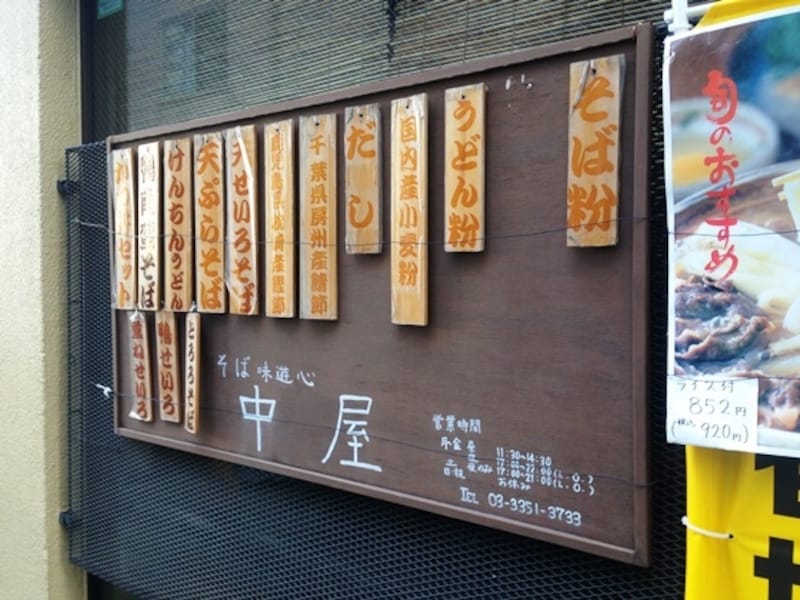 そば粉
うどん粉
国内産小麦粉
だし
千葉県房州産鯖節
天せいろそば
天ぷらそば
けんちんうどん
そば
セット
とろろそば
鴨せいろ
重ねせいろ
そば味遊心
中屋
営業時間
月金 昼 11:30~14:30
17:00~22:00(L.O.)
土 夜のみ 17:00~21:00(L.O.)
日祝 お休み
TEL 03-3351-3733
旬のおすすめ
ライス付
852円
(税込 920円)